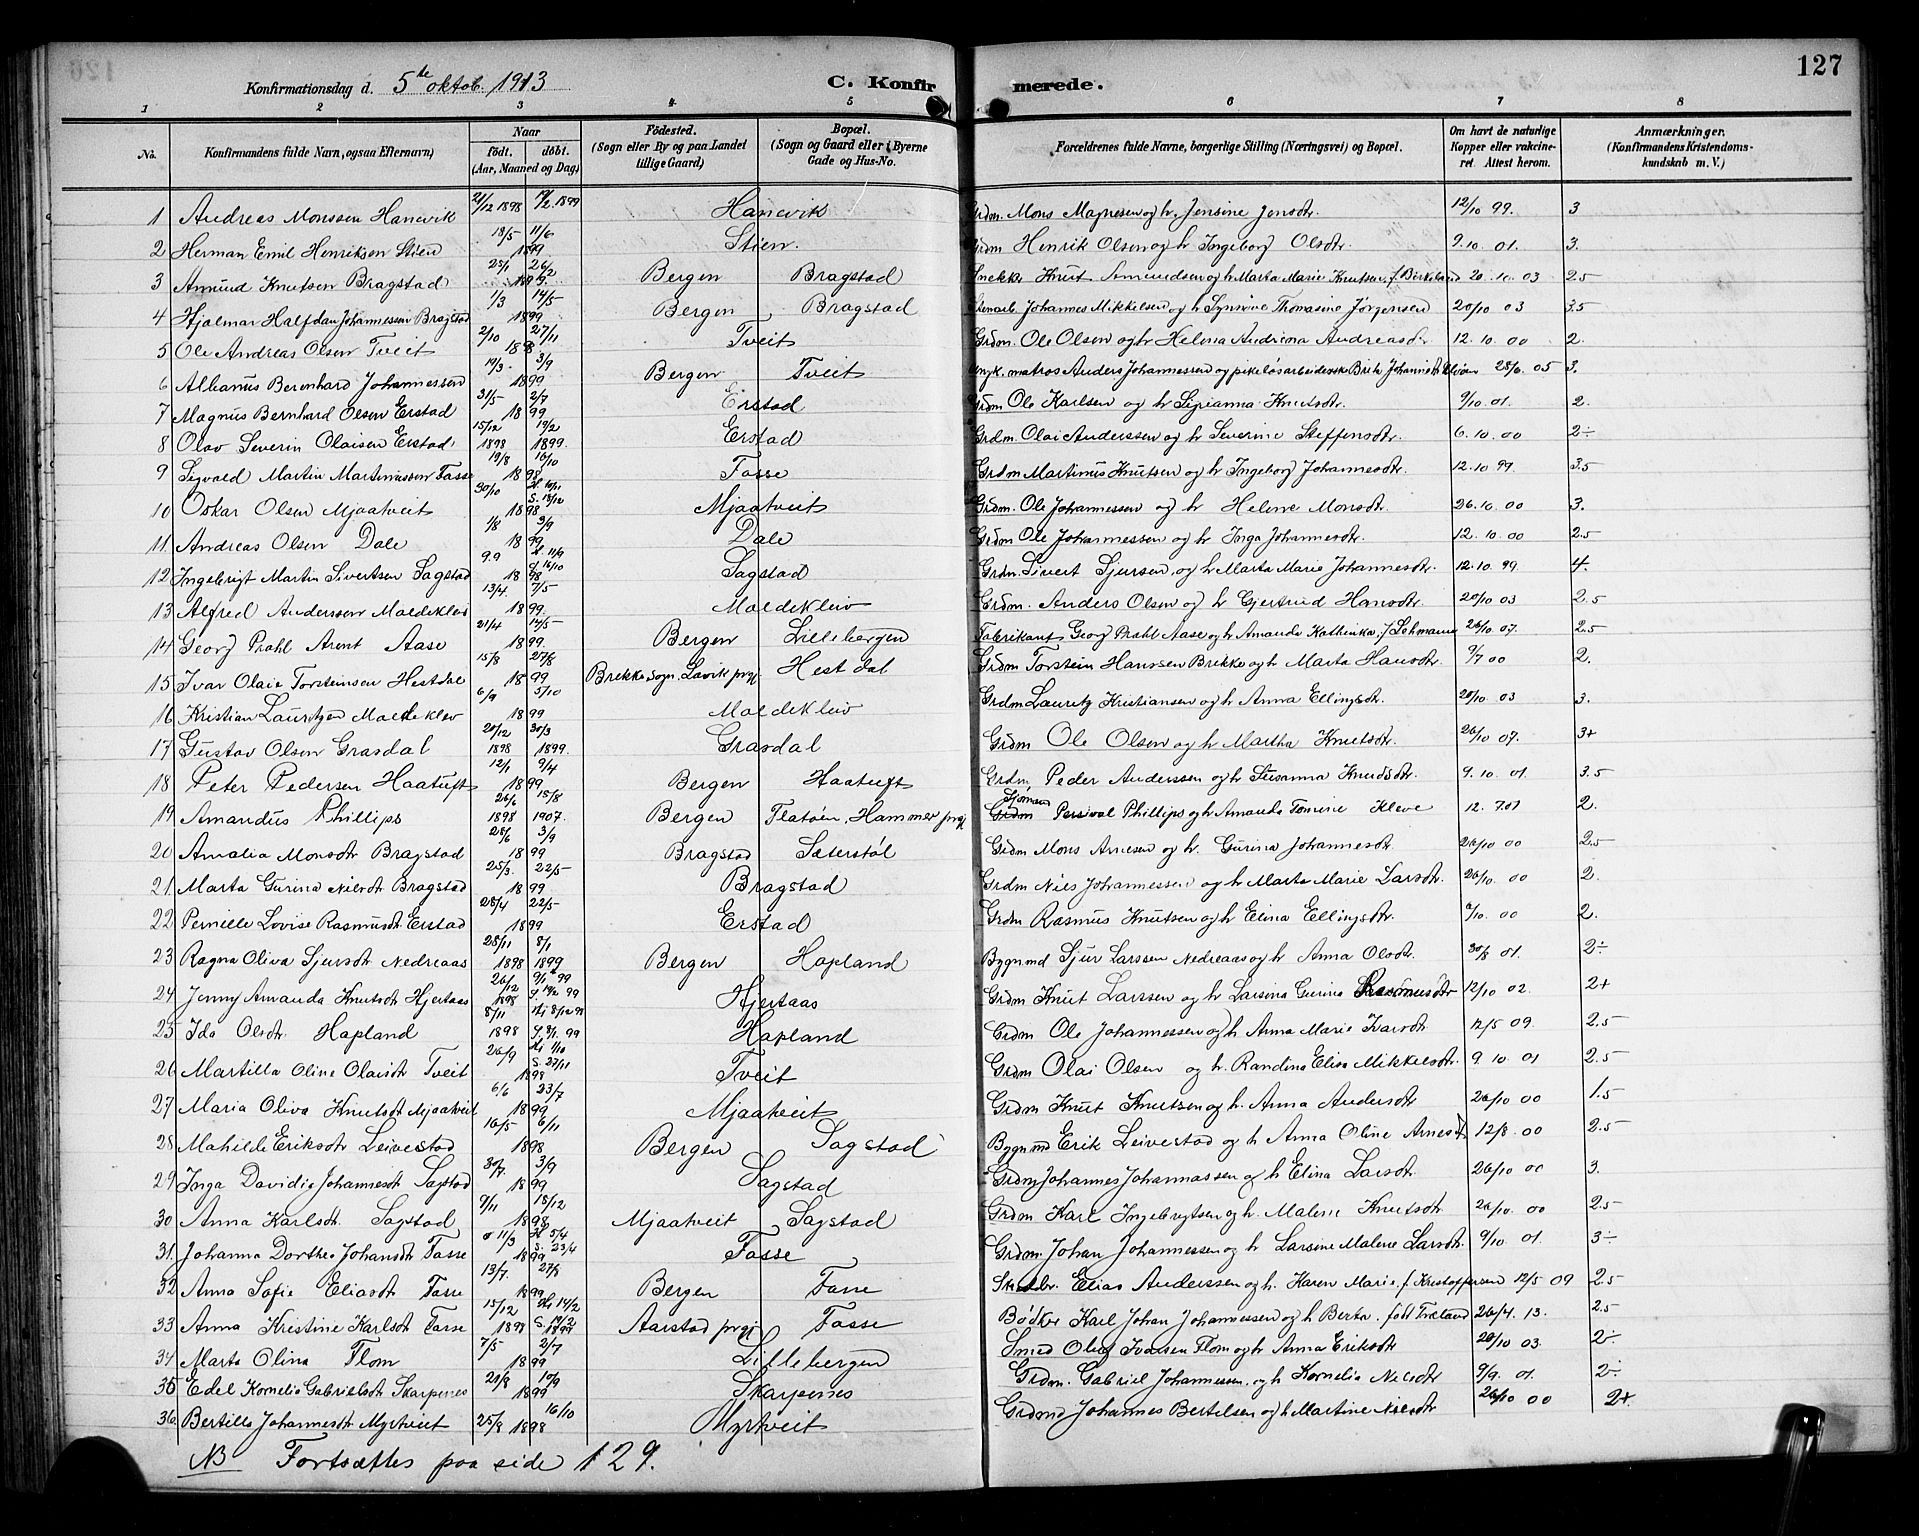 126
127
Konfirmationsdag d. 5te oktob. 1913
C. Konfirmerede.
1 2 3 4 5 6 7 8
No.
Konfirmandens fulde Navn, ogsaa Efternavn)
Naar
födt. döbt.
(Aar, Maaned og Dag)
Födested.
(Sogn eller By og paa Landet
tillige Gaard)
Bopæl.
(Sogn og Gaard eller i Byerne
Gade og Hus-No.
Forældrenes fulde Navne, borgerlige Stilling (Næringsvei) og Bopæl.
Om havt de naturlige
Kopper eller vakcine-
ret. Attest herom.
Anmærkninger.
(Konfirmandens Kristendoms-
kundskab m. V.)
1 Andreas Monssen Hanevik 21/12 1898 12/2 1899 Hanevik Grdm. Mons Magnesen og h. Jensine Jensdtr. 12/10 99. 3
2 Herman Emil Henriksen Stien 18/5 11/6 1899 Stien. Grdm Henrik Olsen og h Ingeborg Olsdtr. 9.10.01. 3.
3 Amund Knutsen Bragstad 25/1 26/2 1899. Bergen Bragstad Snekker Knut Amundsen og h Marta Marie Knutsen, f Birkeland 20.10.03 2.5
4 Hjalmar Halfdan Johannessen Bragstad 1/3 14/5 1899 Bergen Bragstad Stenarb. Johannes Mikkelsen og h Synnöve Thomasine Jörgensen 20/10 03 3.5
5 Ole Andreas Olsen Tveit 2/10 27/11 1898 Tveit Grdm. Ole Olsen og h Helena Andrina Andreasdr 12.10.00 2.
6 Albanus Berenhard Johannessen 19/3. 3/9 1899 Bergen Tveit ungk. matros Anders Johannessen og pike lösarbeiderske Brita Johannesdtr 28/6. 05 3.
7 Magnus Bernhard Olsen Erstad 31/5 2/7 1899 Erstad Grdm Ole Karlsen og h Sirianna Knutsdtr. 9/10.01. 2.
8 Olav Severin Olaisen Erstad 15/12 1898 19/2 1899. Erstad Grdm. Olai Anderssen og h Severine Steffensdtr. 6.10.00 2÷
9 Sigvald Martin Martinussen Fosse 19/8 16/10 1898 Fosse Grdm Martinus Knutsen og h Ingeborg Johannesdtr. 12.10.99. 3.5
10 Oskar Olsen Mjaatveit 30/10 S. 18/12 1898 Mjaatveit Grdm. Ole Johannessen og h Helene Monsdtr. 26.10.00 3.
11. Andreas Olsen Dale 1/8 3/9 1899 Dale Grdm Ole Johannessen og h Inga Johannesdtr. 12.10.00 2.5
12 Ingebrigt Martin Sivertsen Sagstad 9.9 16/10 1898 Sagstad Grdm. Sivert Sjursen, og h Marta Marie Johannesdtr. 12.10.99. 4.
13 Alfred Anderssen Moldekleiv 13/4. 7/5 1899. Moldekleiv Grdm. Anders Olsen og h Gjertrud Hansdtr. 20/10 03 2.5
14 Georg Prahl Arent Aase 21/4 14/5 1899. Bergen Lillebergen Fabrikant Georg Prahl Aase og h Amanda Kathinka, f Sehmann 26/10 07. 2.5
15 Ivar Olaie Torsteinsen Hestdal 15/8 27/8 1899 Brekke sogn. Lavik prgj Hestdal Grdm Torstein Hanssen Brekke og h Marta Hansdtr. 9/7 00 2.
16 Kristian Lauritzen Moldeklev 6/9 5/10 1899 Moldekleiv Grdm Lauritz Kristiansen og h Anna Ellingsdtr. 20/10 03 3.
17 Gustav Olsen Grasdal 20/12 1898 30/3 1899. Grasdal Grdm Ole Olsen og h Martha Knutsdtr. 26/10 07. 3+
18 Peter Pedersen Haatuft 12/1 9/4 1899 Bergen Haatuft Grdm, Peder Anderssen og h Susanna Knudsdtr. 9.10.01. 3.5
19 Amandus Phillips 26/6 1898 15/8 1907. Bergen Flatöen, Hammer prgj Sjömand Percival Phillips og h Amanda Tomine Kleve 12.7.07 2.
20 Amalia Monsdtr Bragstad 28/6 3/9 1899 Bragstad Sæterstöl Grdm Mons Arnesen og h. Gurina Johannesdtr. 26/10 00 2.5
21. Marta Gurina Nilsdtr Bragstad 25/3. 22/5 1899. Bragstad Grdm Nils Johannessen og h Marta Marie Larsdtr. 26/10. 00 2.
22 Pernille Lovise Rasmusdtr Erstad 28/4 22/5 1899 Erstad Grdm Rasmus Knutsen og h Elina Ellingsdtr. 00 2.
23 Ragna Oliva Sjursdtr Nedreaas 28/11 1898 8/1 1899 Bergen Hopland Bygnmd Sjur Larssen Nedreaas og h Anna Olsdtr. 30/8 01. 2÷
24 Jenny Amanda Knutsdtr Hjertaas 26/12 1898 9/1 99 S. 19/2 99 Hjertaas Grdm Knut Larssen og h Larsina Gurina Rasmusdtr 12/10 02. 2+
25 Ida Olsdtr. Hopland 8/11 1898 Hj 8/12 98 S. 8/1. 99 Hopland Grdm Ole Johannessen og h. Anna Marie Ivarsdtr. 12/5 09. 2.5
26 Martilla Oline Olaisdtr Tveit 26/9 Hj 1/10 S. 27/11 1898 Tveit Grdm Olai Olsen og h. Randina Elisa Mikkelsdtr. 9.10.01 2.5
27 Maria Oliva Knutsdtr Mjaatveit 6/6 23/7 1899 Mjaatveit Grdm Knut Knutsen og h. Anna Andersdtr 26/10 00 1.5
28 Mahilde Eriksdtr Leivestad 16/5. 6/11 1898 Bergen Sagstad Bygnmd Erik Leivestad og h Anna Oline Arnesdtr 12/8.00 2.5
29 Inga Davidia Johannesdtr Sagstad 30/7. 3/9 1899 Sagstad Grdm Johannes Johannassen og h Elina Larsdtr. 26/10 00 3.
30 Anna Karlsdtr. Sagstad 9/11 18/12 1898 Mjaatveit Sagstad Grdm. Karl Ingebrigtsen og h. Malene Knutsdtr 26/10. 00 2.5
31. Johanna Dorthea Johansdtr Fosse 11/3 5/4 S. 23/4 1899 Fosse Grdm. Johan Johannessen og h Larsine Malene Larsdtr. 9/10 01. 3÷
32 Anna Sofie Eliasdtr Fosse 13/7. 27/8 1899 Bergen Fosse Elias Anderssen og h. Karen Marie, f. Kristoffersen 12/5 09 2.5
33 Anna Kristine Karlsdtr Fosse 15/12 1898 Hj 14/2 S. 19/2 1899 Aarstad prgj Fosse Bödker Karl Johan Johannessen og h Berta, född Træland 26/4. 13. 2.5
34 Marta Olina Flom 7/5 2/7 1899 Lillebergen Smed Oluf Ivarsen Flom og h Anna Eriksdtr 20/10 03. 2÷
35 Edel Kornelia Gabrielsdtr Skarpenes 21/8 10/9 1899 Skarpenes Grdm. Gabriel Johannessen, og h Kornelia Nilsdtr 9/9. 01. 2÷
36. Bertilla Johannesdtr Myrtveit 25/8 16/10 1898 Myrtveit Grdmd Johannes Bertelsen og h Martine Nilsdtr 26/10 00 2+
NB Fortsættes paa side 129.